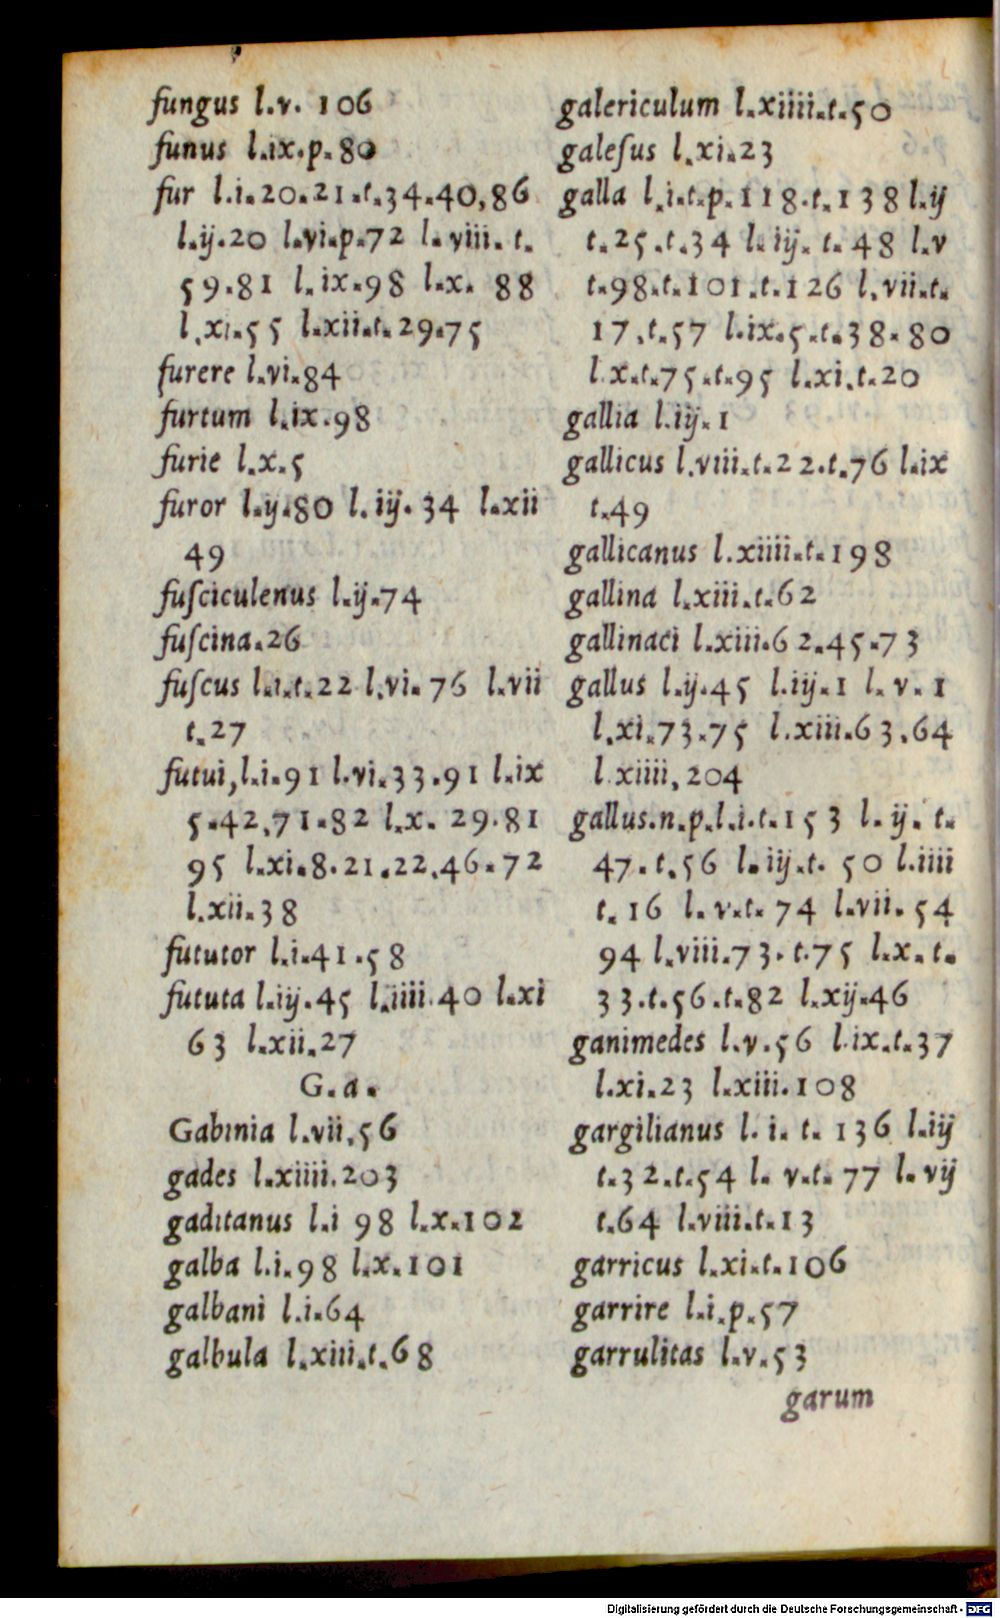 fungus l.v. 106
funus l.ix.p.80
fur l.i.20.21.t.34.40,86
l.ij.20 l.vi.p.72 l.viii. t.
59.81 l.ix.98 l.x. 88
l.xi.55 l.xii.t.29.75
furere l.vi.84
furtum l.ix.98
furie l.x.5
furor l.ij.80 l.iij.34 l.xii
49
fuſciculenus l.ij.74
fuſcina.26
fuſcus l.i.t.22 l.vi.76 l.vii
t.27
futui,l.i.91 l.vi.33.91 l.ix
5.42,71.82 l.x. 29.81
95 l.xi.8.21.22.46.72
l.xii.38
fututor l.i.41.58
fututa l.iij.45 l.iiii.40 l.xi
63 l.xii.27
G.a.
Gabinia l.vii,56
gades l.xiiii.203
gaditanus l.i 98 l.x.102
galba l.i.98 l.x.101
galbani l.i.64
galbula l.xiii.t.68
galericulum l.xiiii.t.50
galeſus l.xi.23
galla l.i.t.p.118.t.138 l.ij
t.25.t.34 l.iij. t.48 l.v
t.98.t.101.t.126 l.vii.t.
17.t.57 l.ix.5.t.38.80
l.x.t.75.t.95 l.xi.t.20
gallia l.iij.1
gallicus l.viii.t.22.t.76 l.ix
t.49
gallicanus l.xiiii.t.198
gallina l.xiii.t.62
gallinaci l.xiii.62.45.73
gallus l.ij.45 l.iij.1 l.v.1
l.xi.73.75 l.xiii.63.64
l.xiiii,204
gallus.n.p.l.i.t.153 l.ij. t.
47.t.56 l.iij.t. 50 l.iiii
t.16 l.v.t.74 l.vii.54
94 l.viii.73.t.75 l.x.t.
33.t.56.t.82 l.xij.46
ganimedes l.v.56 l.ix.t.37
l.xi.23 l.xiii.108
gargilianus l.i. t. 136 l.iij
t.32.t.54 l.v.t.77 l.vij
t.64 l.viii.t.13
garricus l.xi.t.106
garrire l.i.p.57
garrulitas l.v.53
garum
Digitalisierung gefördert durch die Deutsche Forschungsgemeinschaft - DFG